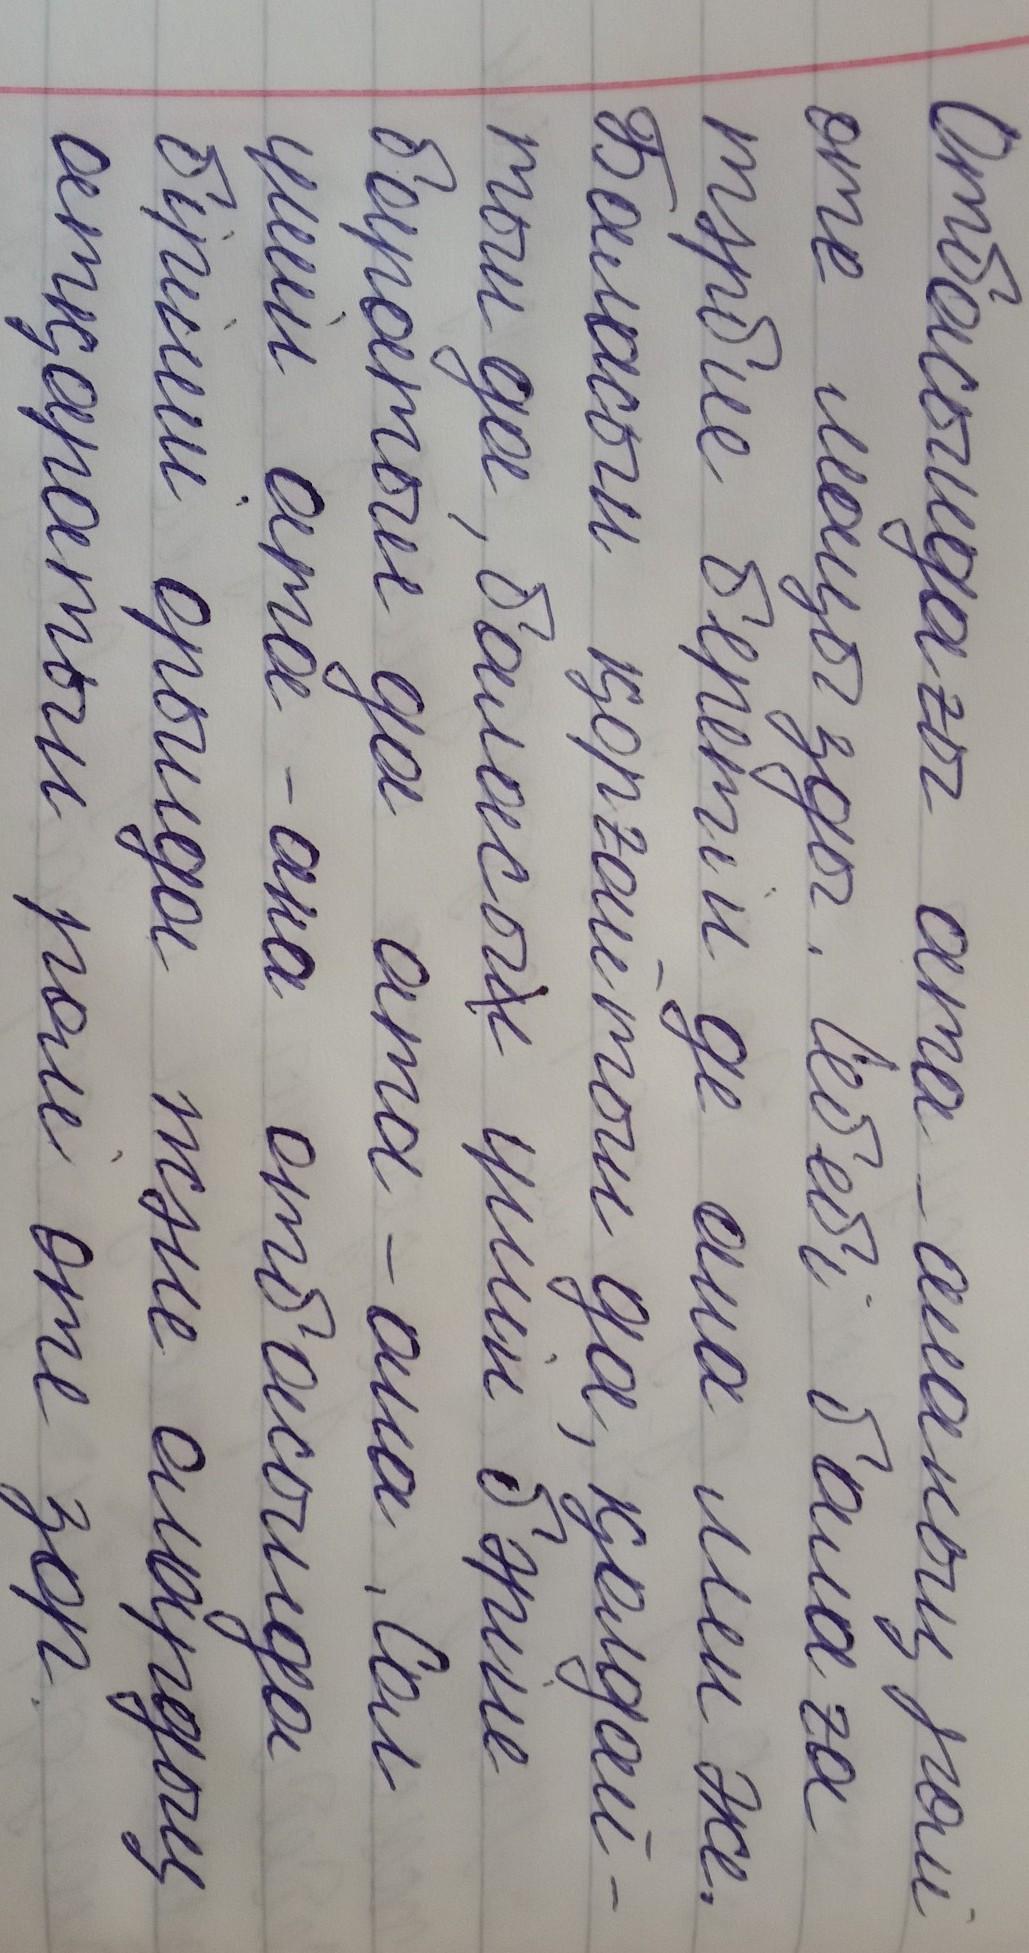 Отбасындағы ата-ананың рөлі
өте маңызды. Себебі балаға
тәрбие беретін де ана мен әке.
Баласын қорғайтын да, қолдай-
тын да, баласы үшін бәріне
баратын да ата-ана. Сол
үшін ата-ана отбасында
бірінші орында және олардың
атқаратын рөлі өте зор.